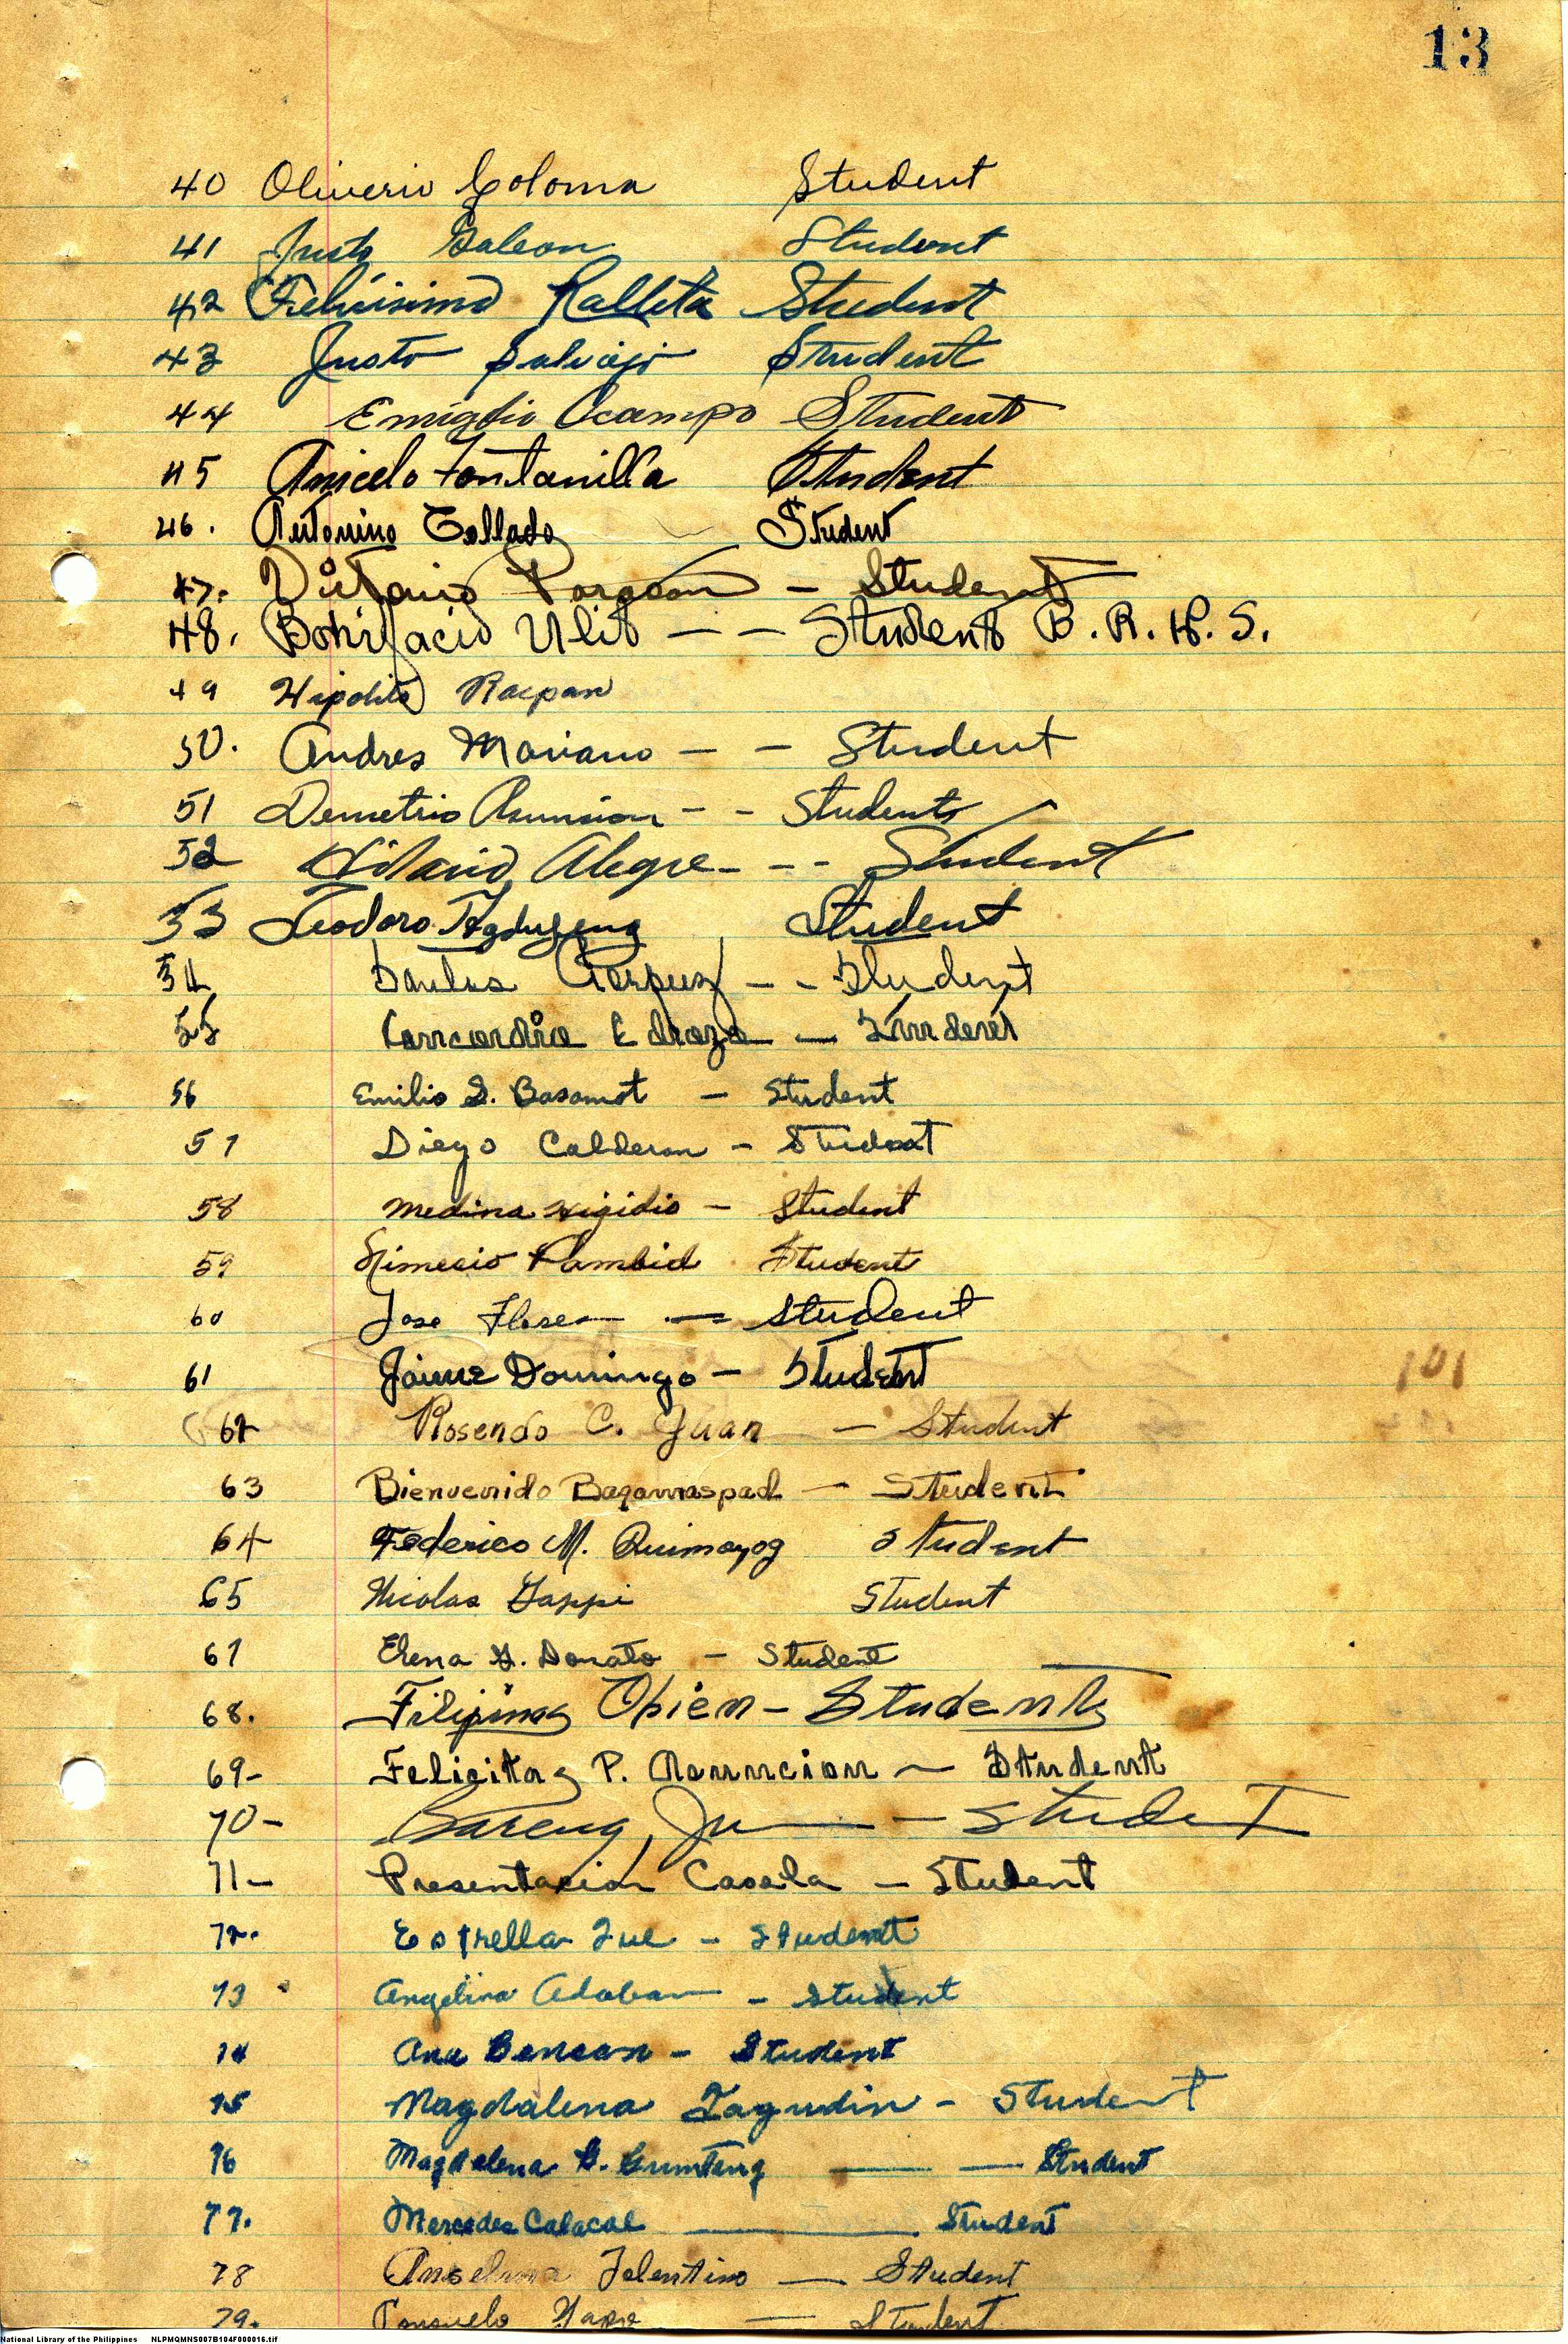 13
40 Oliverio Coloma Student
41 Justo Galeon Student
42 Felicisimo Ralleta Student
43 Justo Student
44 Emigdio Ocampo Student
45 Aniceto Fontanilla Student
46. Antonino Collado Student
47. Victorio - Student
48. Bonifacio Ulit - - Student B. R. H. S.
49 Hipolito Racpan
50. Andres Mariano - - Student
51 Demetrio Asuncion - - Student
52 Hilario Alegre - - - Student
53 Teodoro Student
54 Santos Corpuz - - Student
55 Concordio Edroza - Student
56 Emilio S. Basamot - Student
57 Diego Calderon - Student
58 Medina Higidio - Student
59 Nimecio Pambid Student
60 Jose Flores - Student
61 Jaime Domingo - Student
101
62 Rosendo C. Juan - Student
63 Bienvenido Bagamaspad - Student
64 Federico M. Quimoyog Student
65 Nicolas Gappi Student
67 Elena G. Donato - Student
68. Filipinas Obien - Student
69- Felicitas P. Asuncion - Student
70- Bareng, Ju - Student
71- Presentacion Casala - Student
72. Estrella Que - Student
73 Angelina Adaban - Student
74 Ana Bencan - Student
75 Magdalena Tagudin - Student
76 Magdalena G. Gumteng - - Student
77. Mercedes Calacal - Student
78 Anselma Tolentino - Student
79. Consuelo Yapo - Student
National Library of the Philippines NLPMQMNS007B104F000016.tif